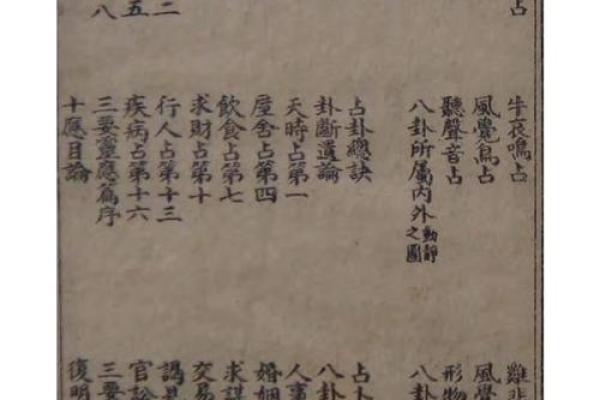 占
二
五
八
牛夜鳴占
風覺鳥占
聽聲音占
八卦所屬内外動静之圖
占卦總訣
卦斷遺論
天時占第一
屋舍占第四
飲食占第七
求財占第十
行人占第十三
疾病占第十六
三要靈應篇序
十應目論
雞
風覺
形物
八卦
占卜
八卦
人事
婚姻
求謀
交易
謁見
官訟
三要
復明